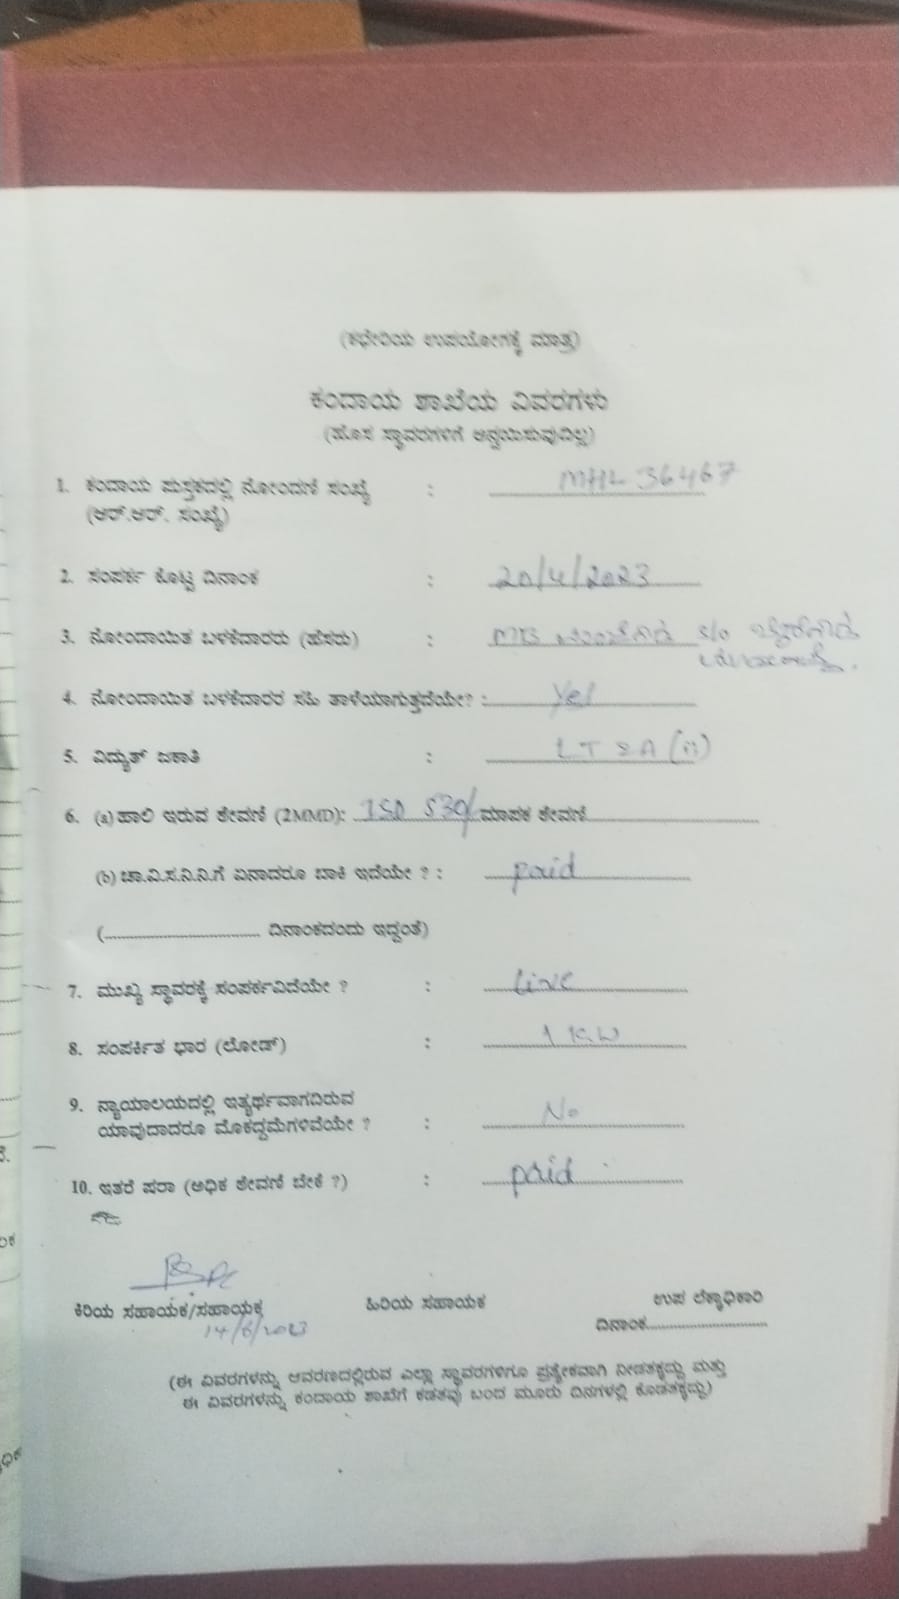 (ಕಛೇರಿಯ ಉಪಯೋಗಕ್ಕೆ ಮಾತ್ರ)
ಕಂದಾಯ ಶಾಖೆಯ ವಿವರಗಳು
(ಹೊಸ ಸ್ಥಾವರಗಳಿಗೆ ಅನ್ವಯಿಸುವುದಿಲ್ಲ)
1. ಕಂದಾಯ ಪುಸ್ತಕದಲ್ಲಿ ನೋಂದಣಿ ಸಂಖ್ಯೆ : MHL 36467
(ಆರ್.ಆರ್. ಸಂಖ್ಯೆ)
2. ಸಂಪರ್ಕ ಕೊಟ್ಟ ದಿನಾಂಕ : 20/4/2023
3. ನೋಂದಾಯಿತ ಬಳಕೆದಾರರು (ಹೆಸರು) : S/o
4. ನೋಂದಾಯಿತ ಬಳಕೆದಾರರ ಸಹಿ ತಾಳೆಯಾಗುತ್ತದೆಯೇ? : Yes
5. ವಿದ್ಯುತ್ ಜಕಾತಿ : LT 2A (ii)
6. (a) ಹಾಲಿ ಇರುವ ಠೇವಣಿ (2MMD): ISD 530/ ಮಾಪಕ ಠೇವಣಿ
(b) ಚಾ.ವಿ.ಸ.ನಿ.ನಿ.ಗೆ ಏನಾದರೂ ಬಾಕಿ ಇದೆಯೇ ? : paid
( ದಿನಾಂಕದಂದು ಇದ್ದಂತೆ)
7. ಮುಖ್ಯ ಸ್ಥಾವರಕ್ಕೆ ಸಂಪರ್ಕವಿದೆಯೇ ? : Live
8. ಸಂಪರ್ಕಿತ ಭಾರ (ಲೋಡ್) : 1 KW
9. ನ್ಯಾಯಾಲಯದಲ್ಲಿ ಇತ್ಯರ್ಥವಾಗದಿರುವ
ಯಾವುದಾದರೂ ಮೊಕದ್ದಮೆಗಳಿವೆಯೇ ? : No
10. ಇತರೆ ಷರಾ (ಅಧಿಕ ಠೇವಣಿ ಬೇಕೆ ?) : paid
ಕಿರಿಯ ಸಹಾಯಕ/ಸಹಾಯಕ ಹಿರಿಯ ಸಹಾಯಕ ಉಪ ಲೆಕ್ಕಾಧಿಕಾರಿ
14/6/2023 ದಿನಾಂಕ
(ಈ ವಿವರಗಳನ್ನು ಆವರಣದಲ್ಲಿರುವ ಎಲ್ಲಾ ಸ್ಥಾವರಗಳಿಗೂ ಪ್ರತ್ಯೇಕವಾಗಿ ನೀಡತಕ್ಕದ್ದು ಮತ್ತು
ಈ ವಿವರಗಳನ್ನು ಕಂದಾಯ ಶಾಖೆಗೆ ಕಡತವು ಬಂದ ಮೂರು ದಿನಗಳಲ್ಲಿ ಕೊಡತಕ್ಕದ್ದು)